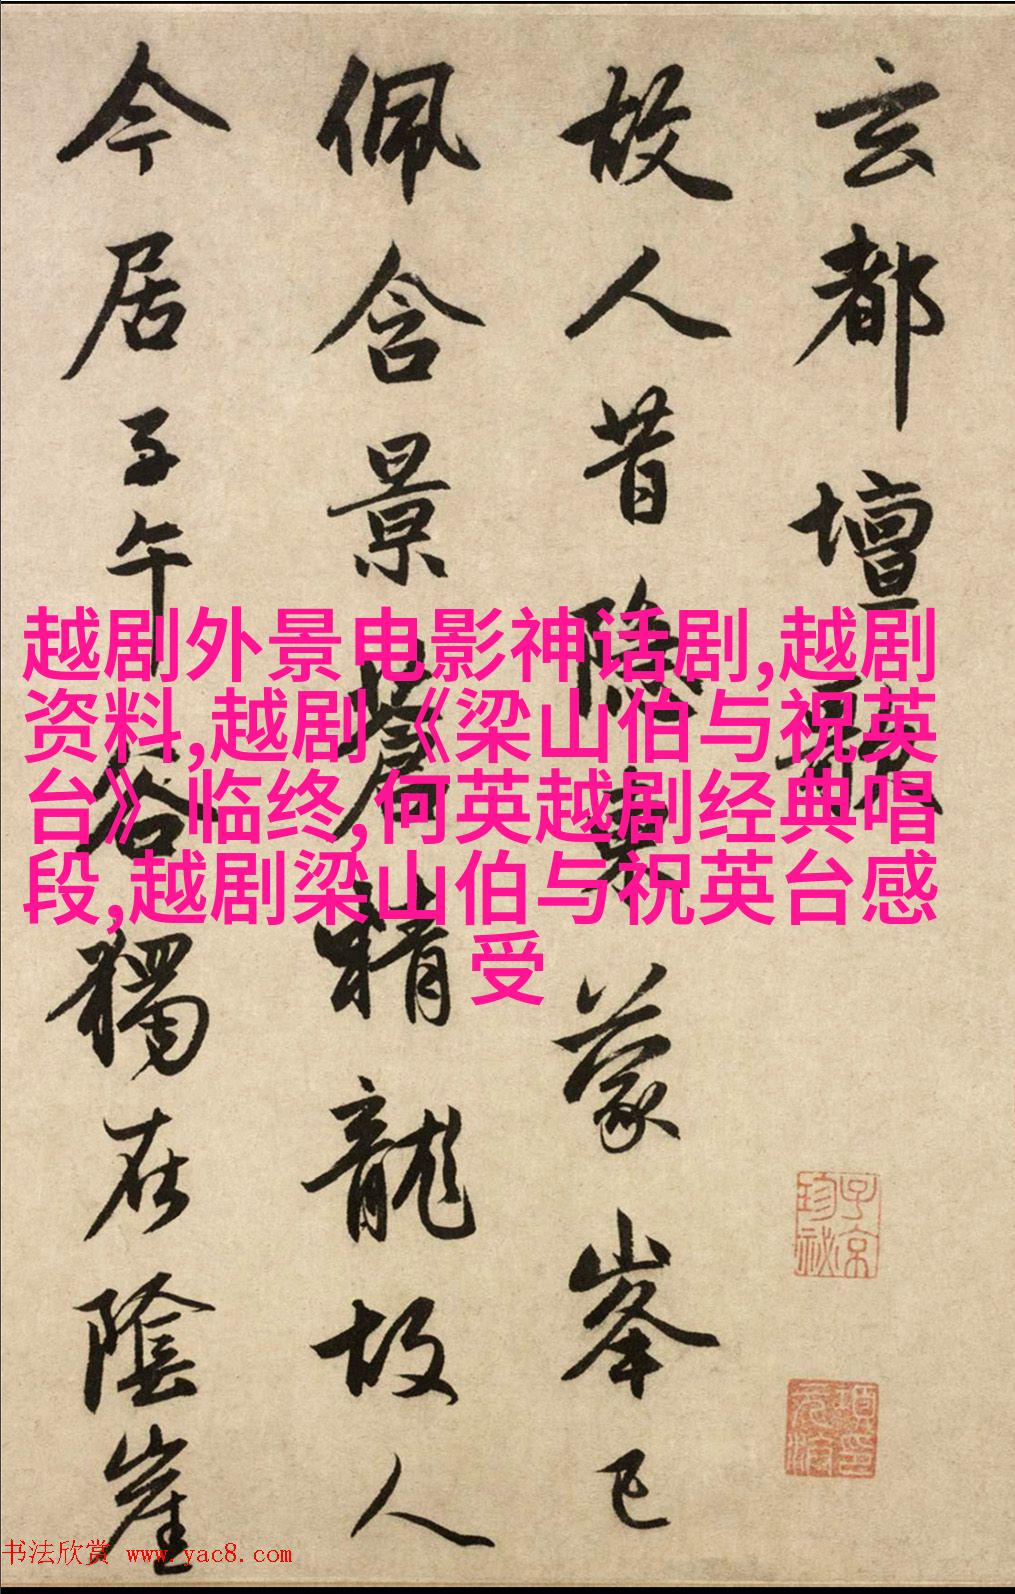 玄都壇歌
故人昔隱東蒙峯已
佩含景蒼精龍故人
今居子午谷獨在陰崖
越剧外景电影神话剧,越剧
资料,越剧《梁山伯与祝英
台》临终,何英越剧经典唱
段,越剧梁山伯与祝英台感
受
子京
珍祕
书法欣赏 www.yac8.com